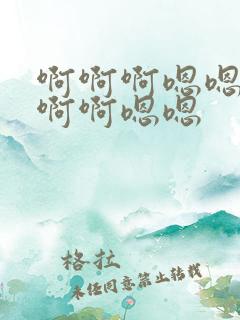 啊啊啊嗯嗯
啊啊嗯嗯
格拉
未经同意禁止转载